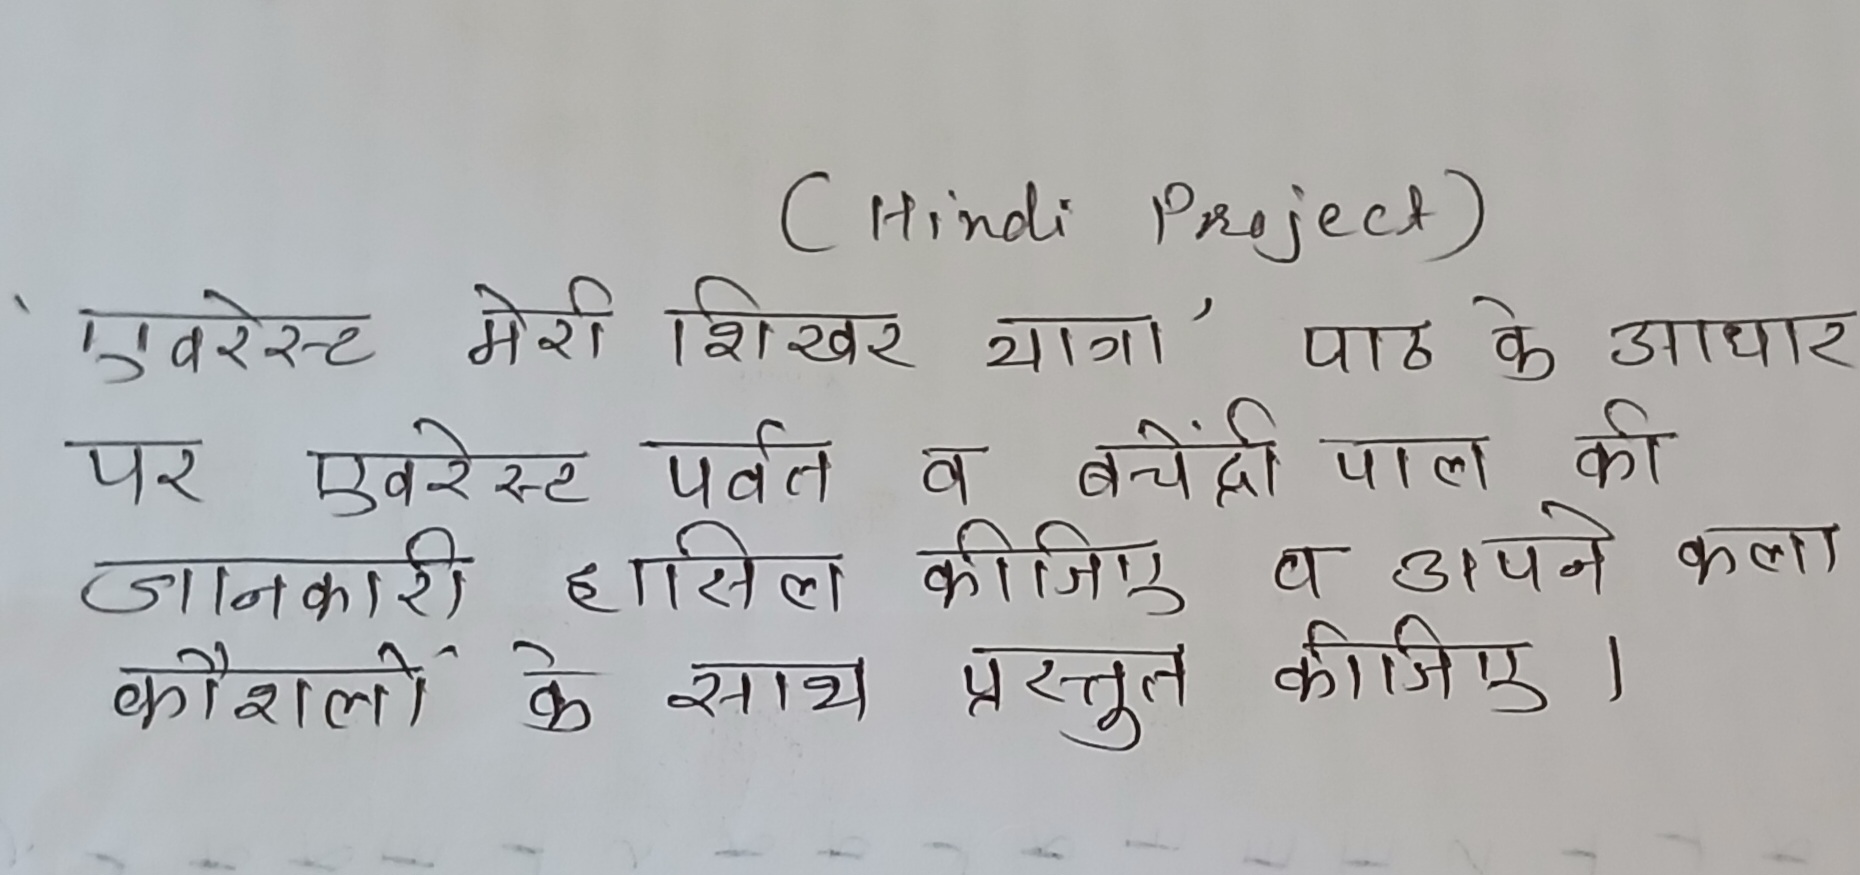 (Hindi Project)
'एवरेस्ट मेरी शिखर यात्रा' पाठ के आधार
पर एवरेस्ट पर्वत व बचेंद्री पाल की
जानकारी हासिल कीजिए व अपने कला
कौशलों के साथ प्रस्तुत कीजिए।